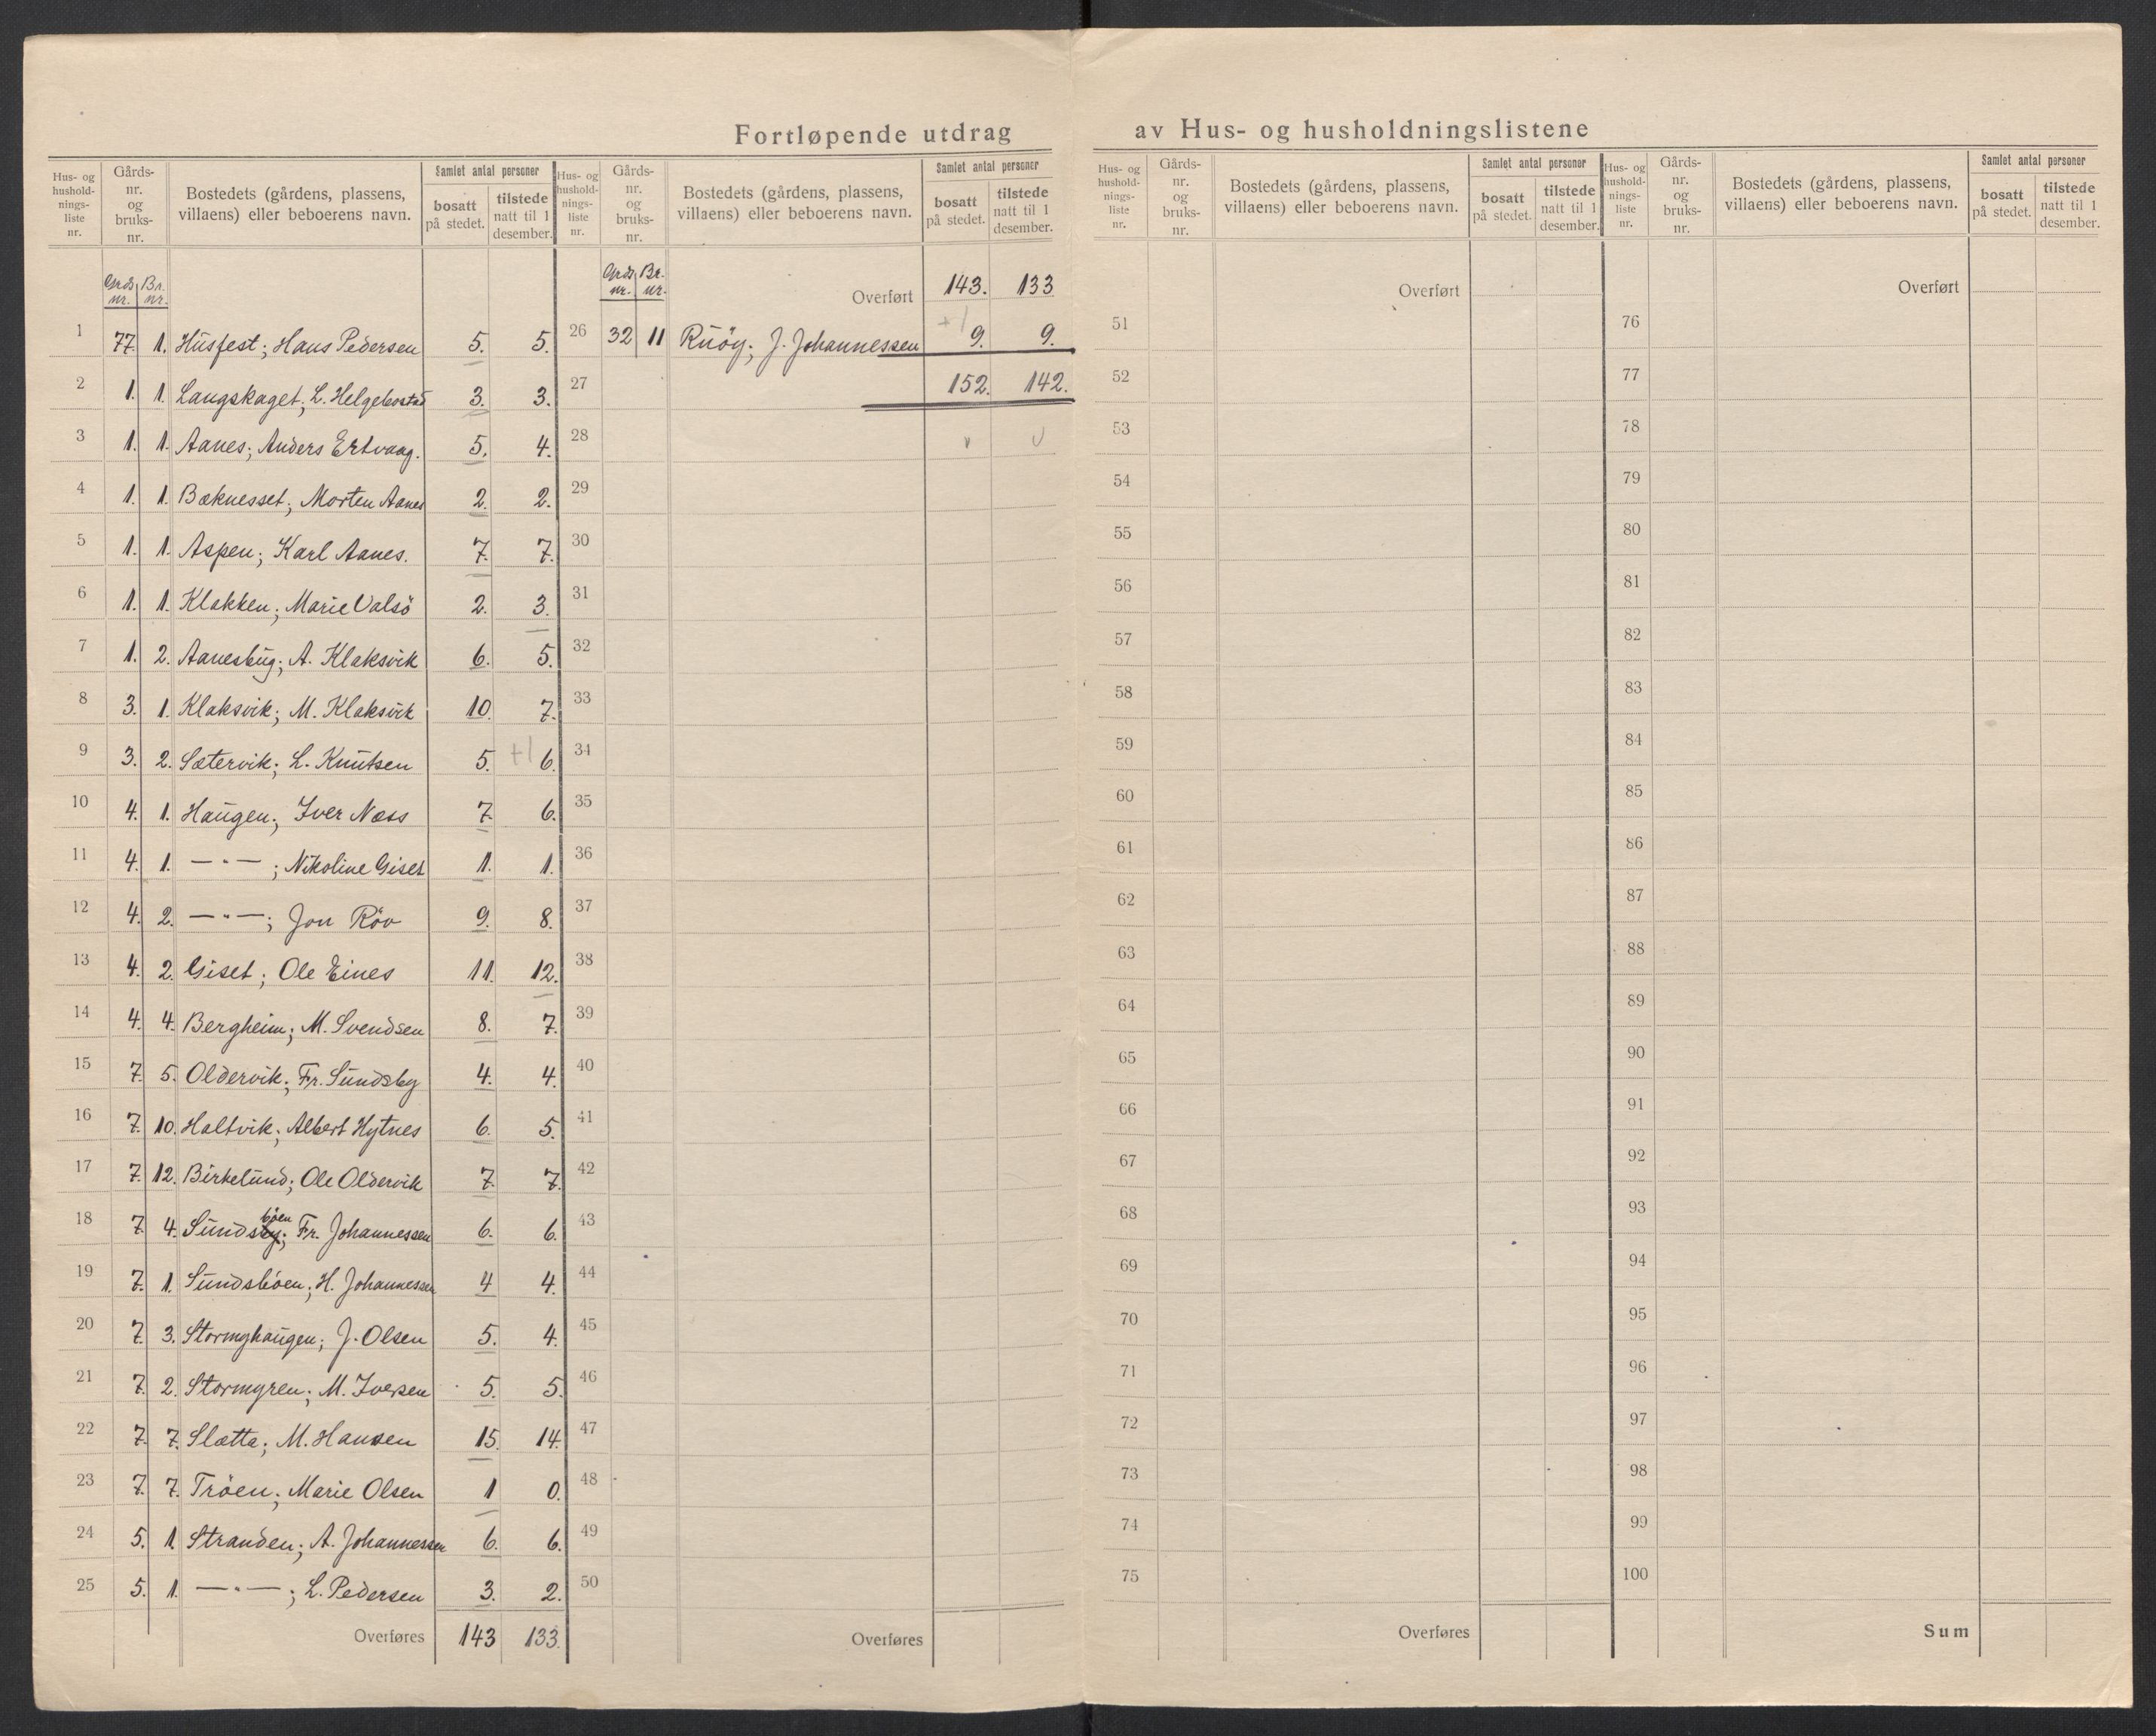 Fortløpende utdrag av Hus- og husholdningslistene
Hus- og hushold-nings-liste nr. | Gårds-nr. og bruks-nr. | Bostedets (gårdens, plassens, villaens) eller beboerens navn. | Samlet antal personer | bosatt på stedet. | tilstede natt til 1 desember.
Hus- og hushold-nings-liste nr. | Gårds-nr. og bruks-nr. | Bostedets (gårdens, plassens, villaens) eller beboerens navn. | Samlet antal personer | bosatt på stedet. | tilstede natt til 1 desember.
Grds nr. | Br. nr.
1 77. 1. Husfest; Hans Pedersen 5. 5.
2 1. 1. Langskaget; L. Helgebostad 3. 3.
3 1. 1. Aanes; Anders Ertvaag. 5. 4.
4 1. 1. Bæknesset; Morten Aanes 2. 2.
5 1. 1. Aspen; Karl Aanes. 7. 7.
6 1. 1. Klakken; Marie Valsö 2. 3.
7 1. 2. Aanesbug; A. Klaksvik 6. 5.
8 3. 1. Klaksvik; M. Klaksvik 10. 7.
9 3. 2. Sætervik; L. Knutsen 5. +1 6.
10 4. 1. Haugen; Iver Næss 7. 6.
11 4. 1. — " — ; Nikoline Giset 1. 1.
12 4. 2. — " — ; Jon Röv 9. 8.
13 4. 2. Giset; Ole Eines 11. 12.
14 4. 4. Bergheim; M. Svendsen 8. 7.
15 7. 5. Oldervik; Fr. Sundsby 4. 4.
16 7. 10. Haltvik; Albert Hytnes 6. 5.
17 7. 12. Birkelund; Ole Oldervik 7. 7.
18 7. 4. Sundsby böen; Fr. Johannessen 6. 6.
19 7. 1. Sundsböen; H. Johannessen 4 4.
20 7. 3. Stormyhaugen; J. Olsen 5. 4.
21 7. 2. Stormyren; M. Iversen 5. 5.
22 7. 7. Slætta; M. Hansen 15. 14.
23 7. 7. Tröen; Marie Olsen 1 0.
24 5. 1. Stranden; A. Johannessen 6. 6.
25 5. 1. — " — ; L. Pedersen 3. 2.
Overføres 143 133.
Grds nr. | Br. nr.
Overført 143. 133
26 32 11 Ruöy; J. Johannessen +1 9. 9.
27 152. 142.
28
29
30
31
32
33
34
35
36
37
38
39
40
41
42
43
44
45
46
47
48
49
50
Overføres
Hus- og hushold-nings-liste nr. | Gårds-nr. og bruks-nr. | Bostedets (gårdens, plassens, villaens) eller beboerens navn. | Samlet antal personer | bosatt på stedet. | tilstede natt til 1 desember.
Overført
51
52
53
54
55
56
57
58
59
60
61
62
63
64
65
66
67
68
69
70
71
72
73
74
75
Overføres
Hus- og hushold-nings-liste nr. | Gårds-nr. og bruks-nr. | Bostedets (gårdens, plassens, villaens) eller beboerens navn. | Samlet antal personer | bosatt på stedet. | tilstede natt til 1 desember.
Overført
76
77
78
79
80
81
82
83
84
85
86
87
88
89
90
91
92
93
94
95
96
97
98
99
100
Sum